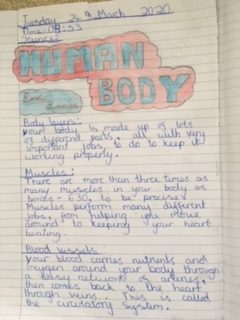 Tuesday 24th March 2020
Time: 09:53
Science
HUMAN
BODY
Body Basics
Body layers:
Your body is made up of lots
of different parts, all with very
important jobs, to do to keep us
working properly.
Muscles:
There are more than three times as
many muscles in your body as
bones - 630, to be precise!
Muscles perform many different
jobs, from helping you move
around to keeping your heart
beating.
Blood vessels
Your blood carries nutrients and
oxygen around your body through
a busy network of arteries,
then comes back to the heart
through veins. This is called
the circulatory system.